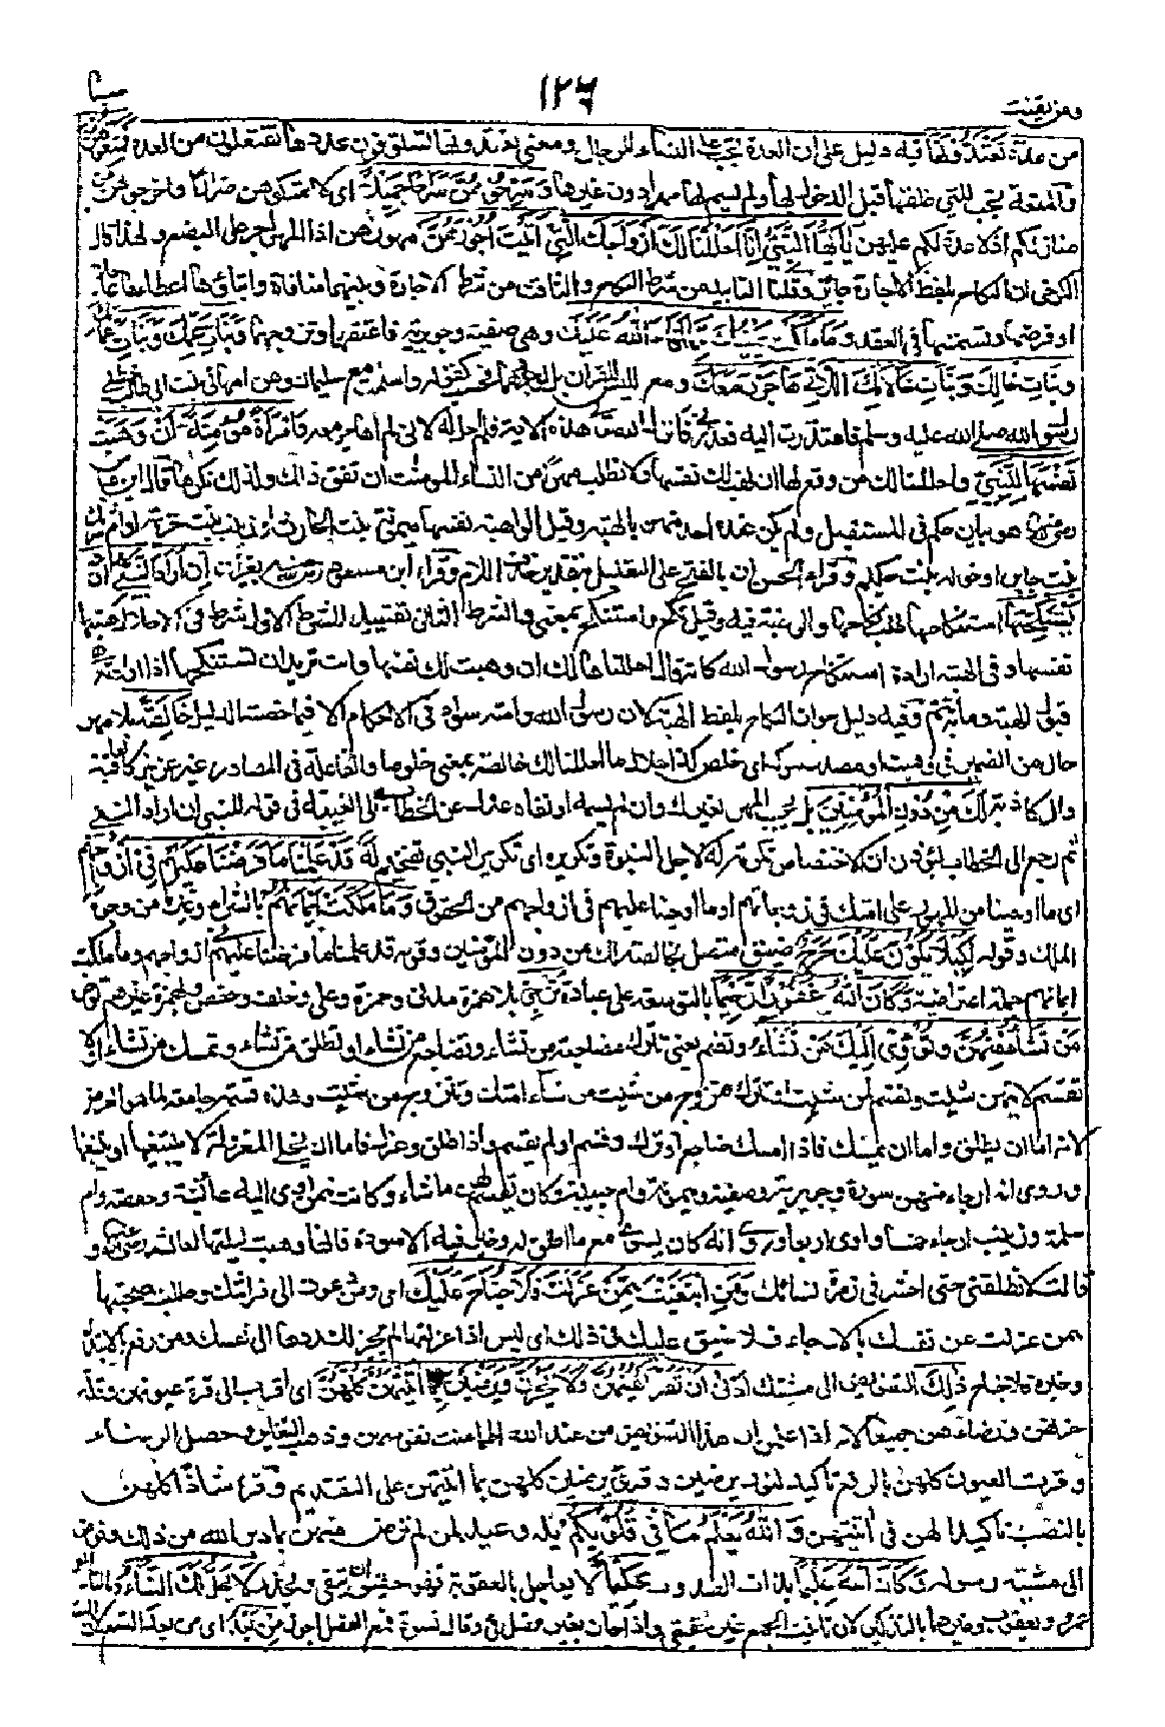 ١٢٦
ومن يقنت
سبا
من عدة تعتدونها فيه دليل على ان العدة تجب على النساء للرجال ومعنى تعتدونها تستوفون عددها تفتعلون من العدة فمتعوهن
والمتعة تجب للتى طلقها قبل الدخول بها ولم يسم لها مهر دون غيرها وسرحوهن سراحا جميلا اى لا تمسكوهن ضرارا واخرجوهن من
منازلكم اذ لا عدة لكم عليهن يايها النبى انا احللنا لك ازواجك التى اتيت اجورهن مهورهن اذ المهر اجر على البضع ولهذا قال
الكرخى ان النكاح بلفظ الاجارة جائز وقلنا التابيد من شرط النكاح والتاقيت من شرط الاجارة وبينهما منافاة وايتاؤها اعطاؤها عاجلا
او فرضها وتسميتها فى العقد وما ملكت يمينك مما افاء الله عليك وهى صفية وجويرية فاعتقهما وتزوجهما وبنات عمك وبنات عماتك
وبنات خالك وبنات خالاتك اللاتى هاجرن معك ومع ليس للقران بل لوجودها فحسب كقوله واسلمت مع سليمان وعن ام هانئ بنت ابى طالب خطبنى
رسول الله صلى الله عليه وسلم فاعتذرت اليه فعذرنى فانزل الله هذه الاية فلم احل له لانى لم اهاجر معه وامراة مومنة ان وهبت
نفسها للنبى واحللنا لك من وقع لها ان تهب لك نفسها ولا تطلب مهرا من النساء المومنات ان اتفق ذلك ولذلك نكرها قال ابن عباس
رضى الله عنهما هو بيان حكم فى المستقبل ولم يكن عنده احد منهن بالهبة وقيل الواهبة نفسها ميمونة بنت الحارث او زينب بنت خزيمة او ام شريك
بنت جابر او خولة بنت حكيم وقراء الحسن ان بالفتح على التعليل بتقدير حذف اللام وقراء ابن مسعود رضى الله عنه بغير ان ان اراد النبى ان
يستنكحها استنكاحها طلب نكاحها والرغبة فيه وقيل نكح واستنكح بمعنى والشرط الثانى تقييد للشرط الاول شرط فى الاحلال هبتها
نفسها وفى الهبة ارادة استنكاح رسول الله كانه قال احللناها لك ان وهبت لك نفسها وانت تريد ان تستنكحها اذ ارادته
قبول الهبة وما به تتم وفيه دليل جواز النكاح بلفظ الهبة لان رسول الله وامته سواء فى الاحكام الا فيما خصه الدليل خالصة بلا مهر
حال من الضمير فى وهبت او مصدر موكد اى خلص لك احلال ما احللنا لك خالصة بمعنى خلوصا والفاعلة فى المصادر غير عزيز كالعافية
والكاذبة لك من دون المؤمنين بل يجب المهر لغيرك وان لم يسمه او نفاه عدل عن الخطاب الى الغيبة فى قوله للنبى ان اراد النبى
ثم رجع الى الخطاب ليؤذن ان الاختصاص تكرمة له لاجل النبوة وتكريره اى تكرير النبى تفخيم له قد علمنا ما فرضنا عليهم فى ازواجهم
اى ما اوجبنا من المهور على امتك فى زوجاتهم او ما اوجبنا عليهم فى ازواجهم من الحقوق وما ملكت ايمانهم بالشراء وغيره من وجوه
الملك وقوله لكيلا يكون عليك حرج ضيق متصل بخالصة لك من دون المؤمنين وقوله قد علمنا ما فرضنا عليهم فى ازواجهم وما ملكت
ايمانهم جملة اعتراضية وكان الله غفورا رحيما بالتوسعة على عباده ترجى بلا همزة مدنى وحمزة وعلى وخلف وحفص وبهمزة غيرهم توخر
من تشاء منهن وتؤوى اليك من تشاء وتضم يعنى تترك مضاجعة من تشاء وتضاجع من تشاء او تطلق من تشاء وتمسك من تشاء او لا
تقسم لايتهن شئت وتقسم لمن شئت او تترك تزوج من شئت من نساء امتك وتتزوج من شئت وهذه قسمة جامعة لما هو الغرض
لانه اما ان يطلق واما ان يمسك فاذا امسك ضاجع او ترك وقسم او لم يقسم واذا طلق وعزل فاما ان يخلى المعزولة لا يبتغيها او يبتغيها
وروى انه ارجاء منهن سودة وجويرية وصفية وميمونة وام حبيبة وكان يقسم لهن ما شاء وكانت ممن اوى اليه عائشة وحفصة وام
سلمة وزينب ارجاء خمسا واوى اربعا وروى انه كان يسوى مع ما اطلق له وخير فيه الا سودة فانها وهبت ليلتها لعائشة رضى الله عنها و
قالت لا تطلقنى حتى احشر فى زمرة نسائك ومن ابتغيت ممن عزلت فلا جناح عليك اى ومن دعوت الى فراشك وطلبت صحبتها
ممن عزلت عن نفسك بالارجاء فلا ضيق عليك فى ذلك اى ليس اذا عزلتها لم يجز لك ردها الى نفسك ومن رفع بالابتداء
وخبره فلا جناح ذلك التفويض الى مشيتك ادنى ان تقر اعينهن ولا يحزن ويرضين بما اتيتهن كلهن اى اقرب الى قرة عيونهن وقلة
حزنهن ورضاهن جميعا لانه اذا علمن ان هذا التفويض من عند الله اطمانت نفوسهن وذهب التغاير وحصل الرضاء
وقرت العيون كلهن بالرفع تاكيد لنون يرضين وقرئ يرضين كلهن بما اتيتهن على التقديم وقرئ شاذا كلهن
بالنصب تاكيدا لهن فى اتيتهن والله يعلم ما فى قلوبكم فيه وعيد لمن لم ترض منهن بما دبر الله من ذلك وفوض
الى مشية رسوله وكان الله عليما بذات الصدور حكيما لا يعاجل بالعقوبة فهو حقيق بان يتقى ويحذر لا يحل لك النساء وبالتاء ابو
عمرو ويعقوب وغيرهما بالتذكير لان تانيث الجمع غير حقيقى واذا جاز بغير فصل فى وقال نسوة فمع الفصل اجوز من بعد اى من بعد التسع لان